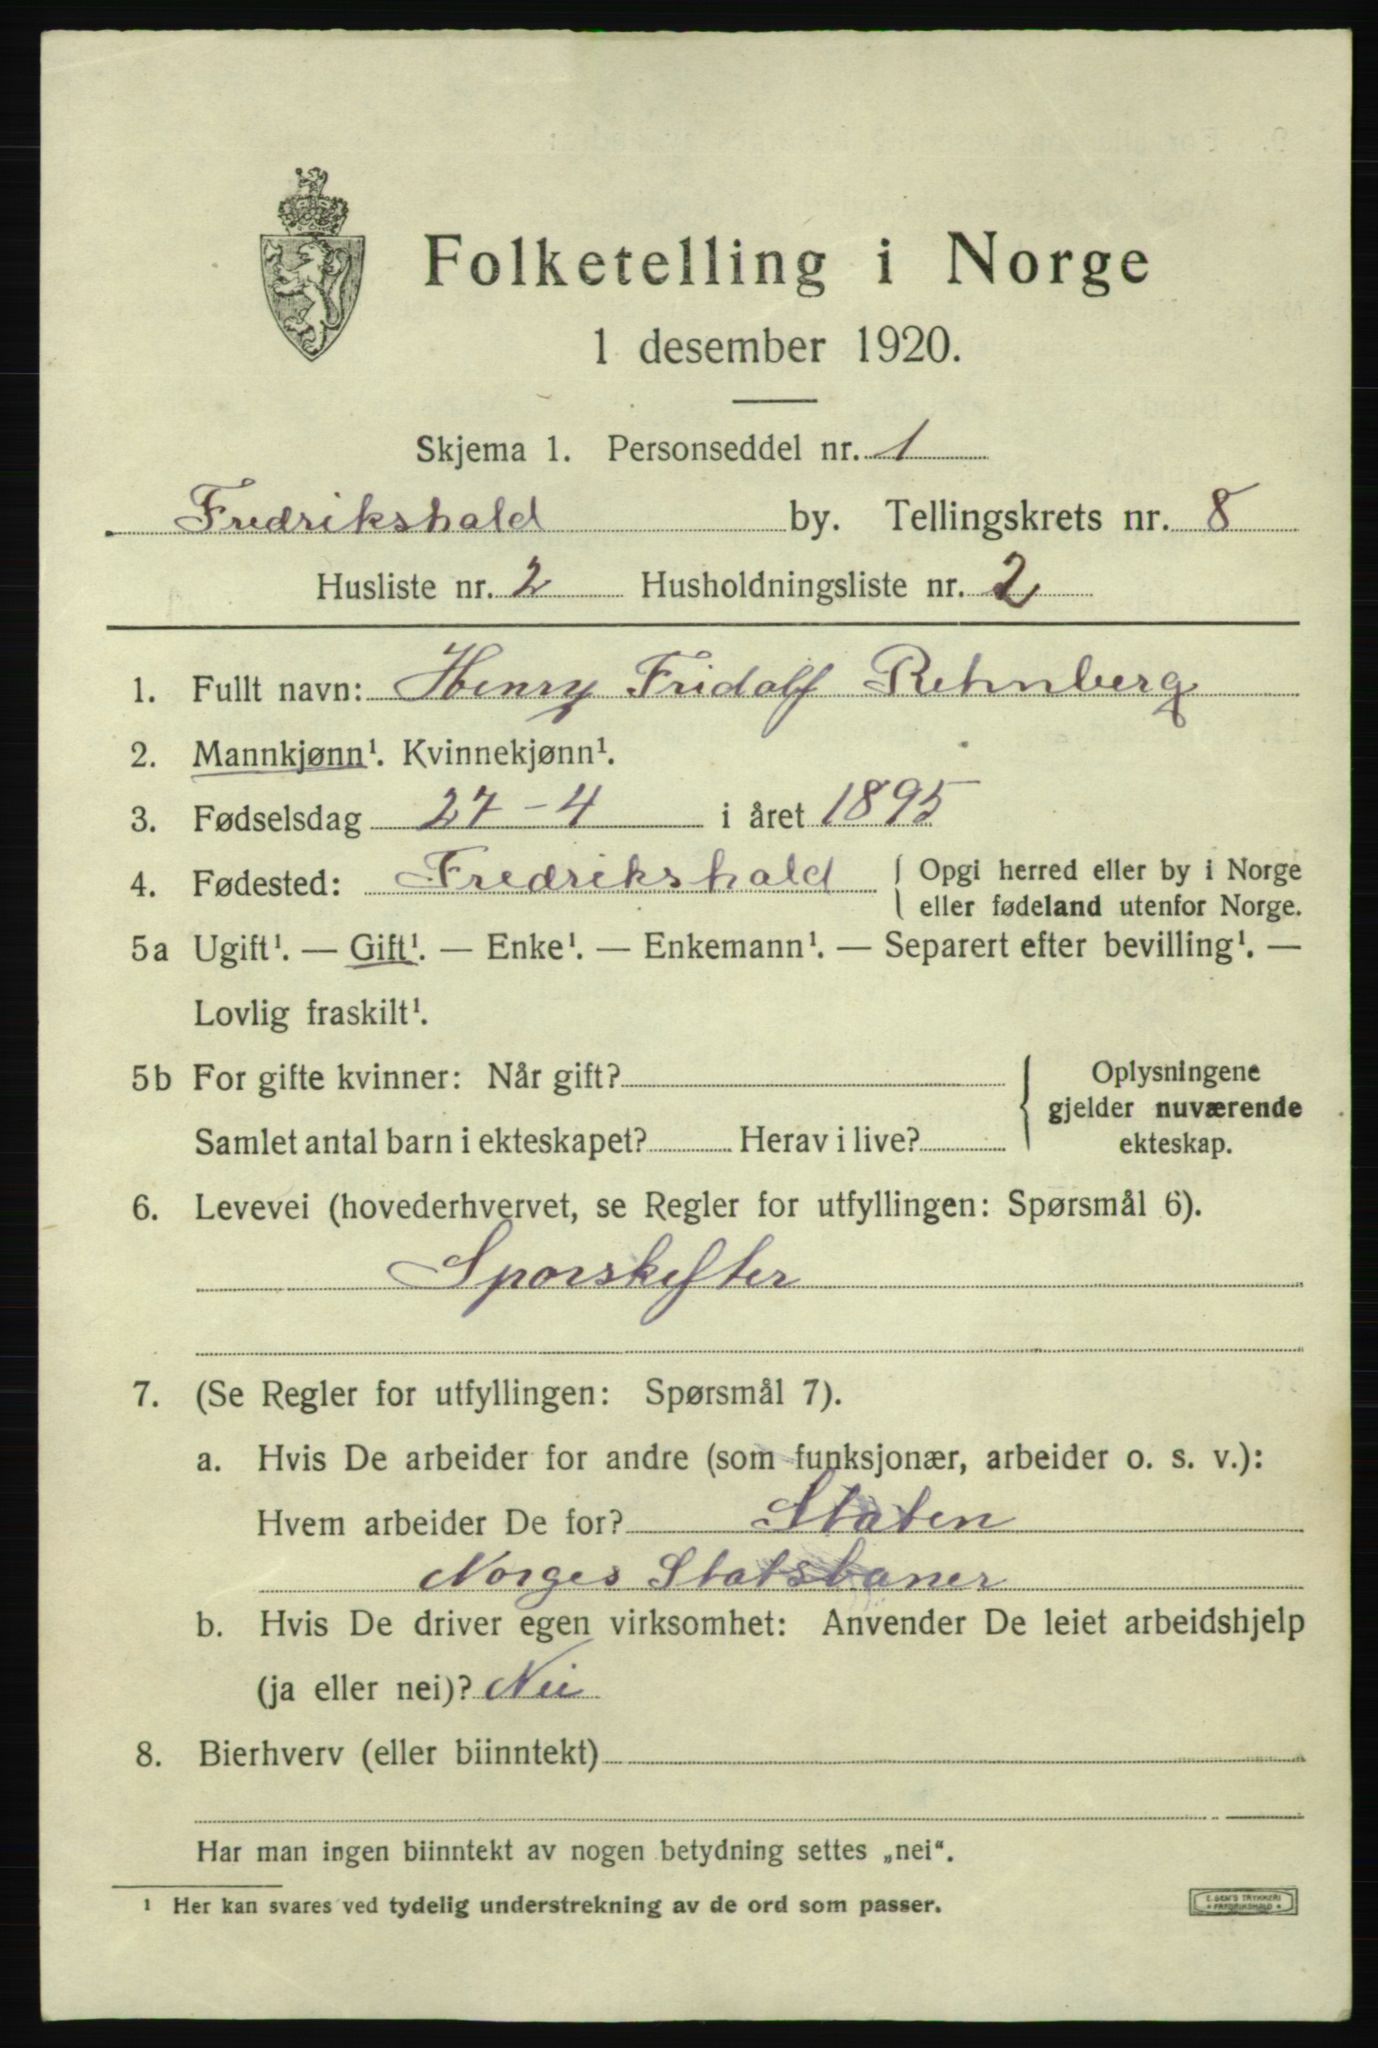 Folketelling i Norge
1 desember 1920.
Skjema 1. Personseddel nr. 1
Fredrikshald by. Tellingskrets nr. 8
Husliste nr. 2 Husholdningsliste nr. 2
1. Fullt navn: Henry Fridolf Rehnberg
2. Mannkjønn¹. Kvinnekjønn¹.
3. Fødselsdag 27-4 i året 1895
4. Fødested: Fredrikshald { Opgi herred eller by i Norge
eller fødeland utenfor Norge.
5a Ugift¹. — Gift¹. — Enke¹. — Enkemann¹. — Separert efter bevilling¹. —
Lovlig fraskilt¹.
5b For gifte kvinner: Når gift? { Oplysningene
gjelder nuværende
Samlet antal barn i ekteskapet? Herav i live? ekteskap.
6. Levevei (hovederhvervet, se Regler for utfyllingen: Spørsmål 6).
Sporskifter
7. (Se Regler for utfyllingen: Spørsmål 7).
a. Hvis De arbeider for andre (som funksjonær, arbeider o. s. v.):
Hvem arbeider De for? Staten
Norges Statsbaner
b. Hvis De driver egen virksomhet: Anvender De leiet arbeidshjelp
(ja eller nei)? Nei
8. Bierhverv (eller biinntekt)
Har man ingen biinntekt av nogen betydning settes „nei“.
¹ Her kan svares ved tydelig understrekning av de ord som passer.
E. SEM'S TRYKKERI
* FREDRIKSHALD *